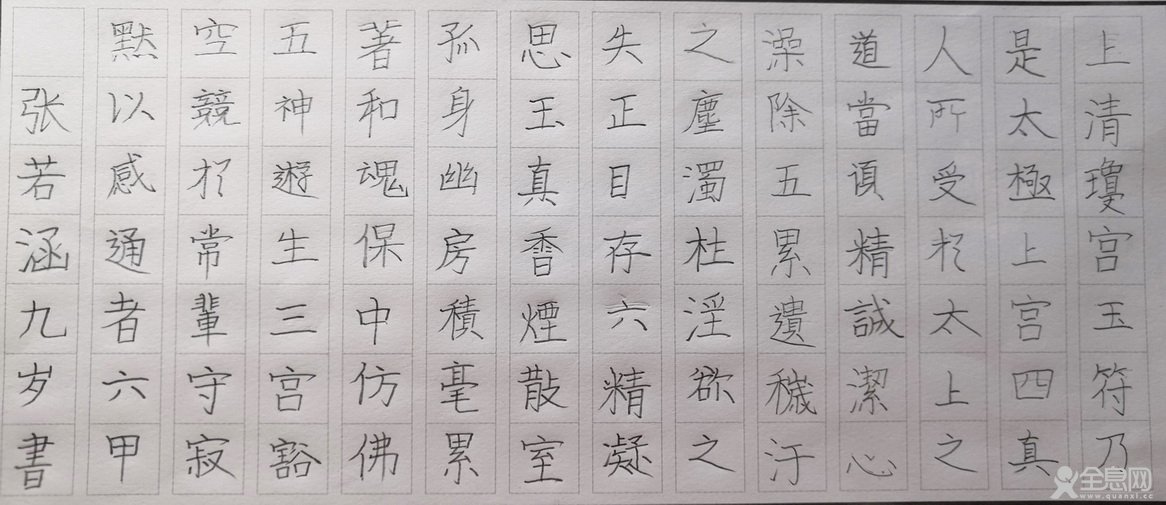 上清瓊宫玉符乃
是太極上宫四真
人所受於太上之
道當須精誠潔心
澡除五累遺穢汙
之塵濁杜淫欲之
失正目存六精凝
思玉真香煙散室
孤身幽房積毫累
著和魂保中仿佛
五神遊生三宫豁
空競於常輩守寂
默以感通者六甲
张若涵九岁書
全息网
www.quanxi.cc